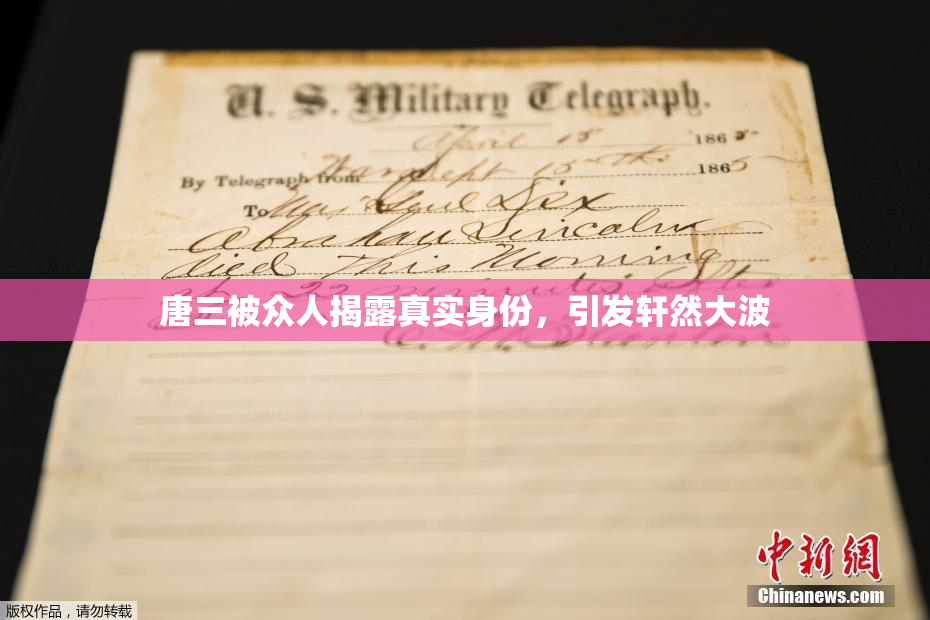 U. S. Military Telegraph.
April 15 1865
By Telegraph from War Dept 15th 1865
To Maj Genl Dix
Abraham Lincoln
died This Morning
at 22 minutes after
唐三被众人揭露真实身份，引发轩然大波
中新网
Chinanews.com
版权作品，请勿转载